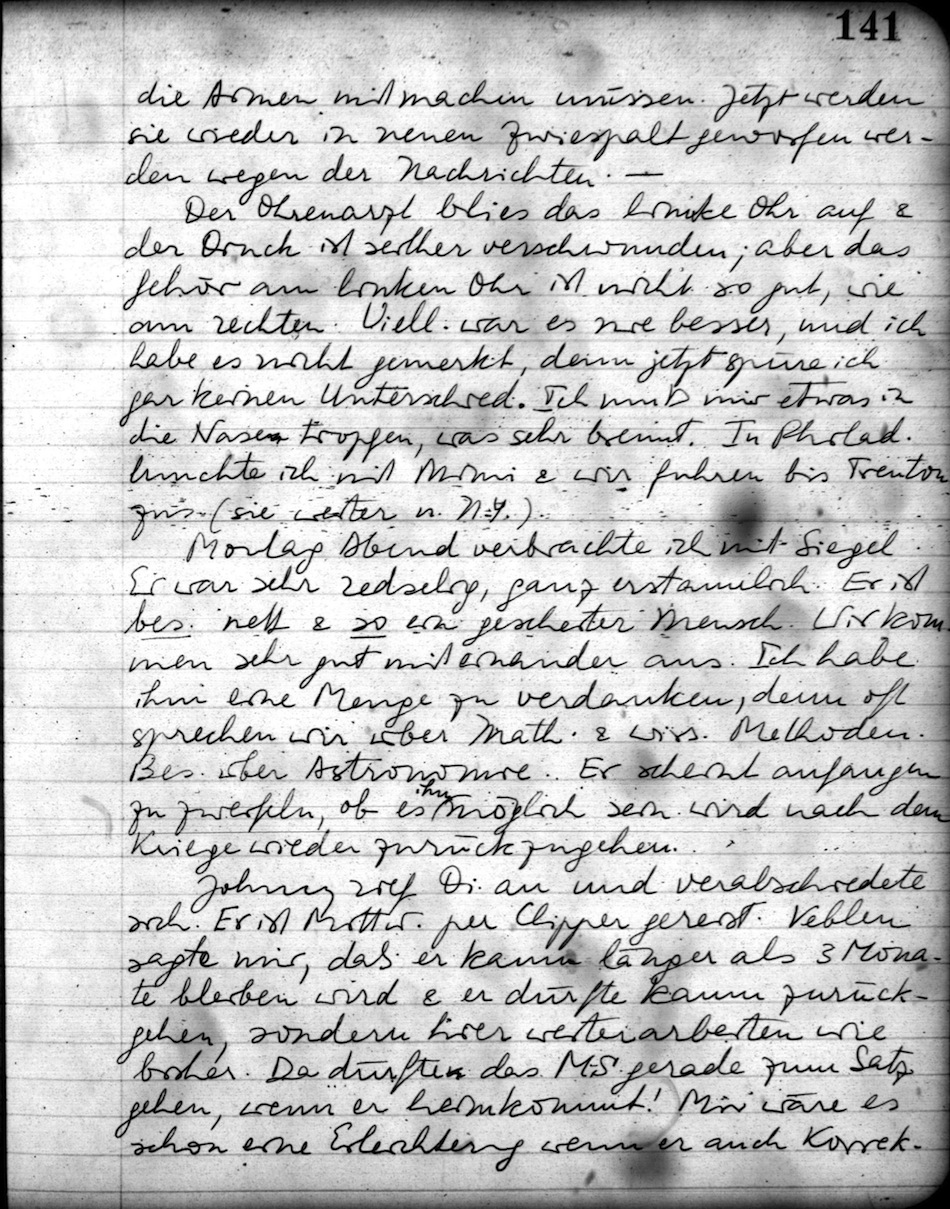 141
die Armen mitmachen müssen. Jetzt werden
sie wieder in neuen Zwiespalt geworfen wer-
den wegen der Nachrichten. —
Der Ohrenarzt blies das linke Ohr auf &
der Druck ist seither verschwunden; aber das
Gehör am linken Ohr ist nicht so gut, wie
am rechten. Viell. war es nie besser, und ich
habe es nicht gemerkt, denn jetzt spüre ich
gar keinen Unterschied. Ich muß mir etwas in
die Nase tropfen, was sehr brennt. In Philad.
lunchte ich mit Mimi & wir fuhren bis Trenton
zus. (sie weiter n. N.Y.).
Montag Abend verbrachte ich mit Siegel.
Er war sehr redselig, ganz erstaunlich. Er ist
bes. nett & so ein gescheiter Mensch. Wir kom-
men sehr gut miteinander aus. Ich habe
ihm eine Menge zu verdanken, denn oft
sprechen wir über Math. & wiss. Methoden.
Bes. über Astronomie. Er scheint anfangen
zu zweifeln, ob es ihm möglich sein wird nach dem
Kriege wieder zurückzugehen.
Johnny rief Di. an und verabschiedete
sich. Er ist Mittw. per Clipper gereist. Veblen
sagte mir, daß er kaum länger als 3 Mona-
te bleiben wird & er dürfte kaum zurück-
gehen, sondern hier weiterarbeiten wie
bisher. Da dürfte das MS gerade zum Satz
gehen, wenn er heimkommt! Mir wäre es
schon eine Erleichterung wenn er auch Korrek-